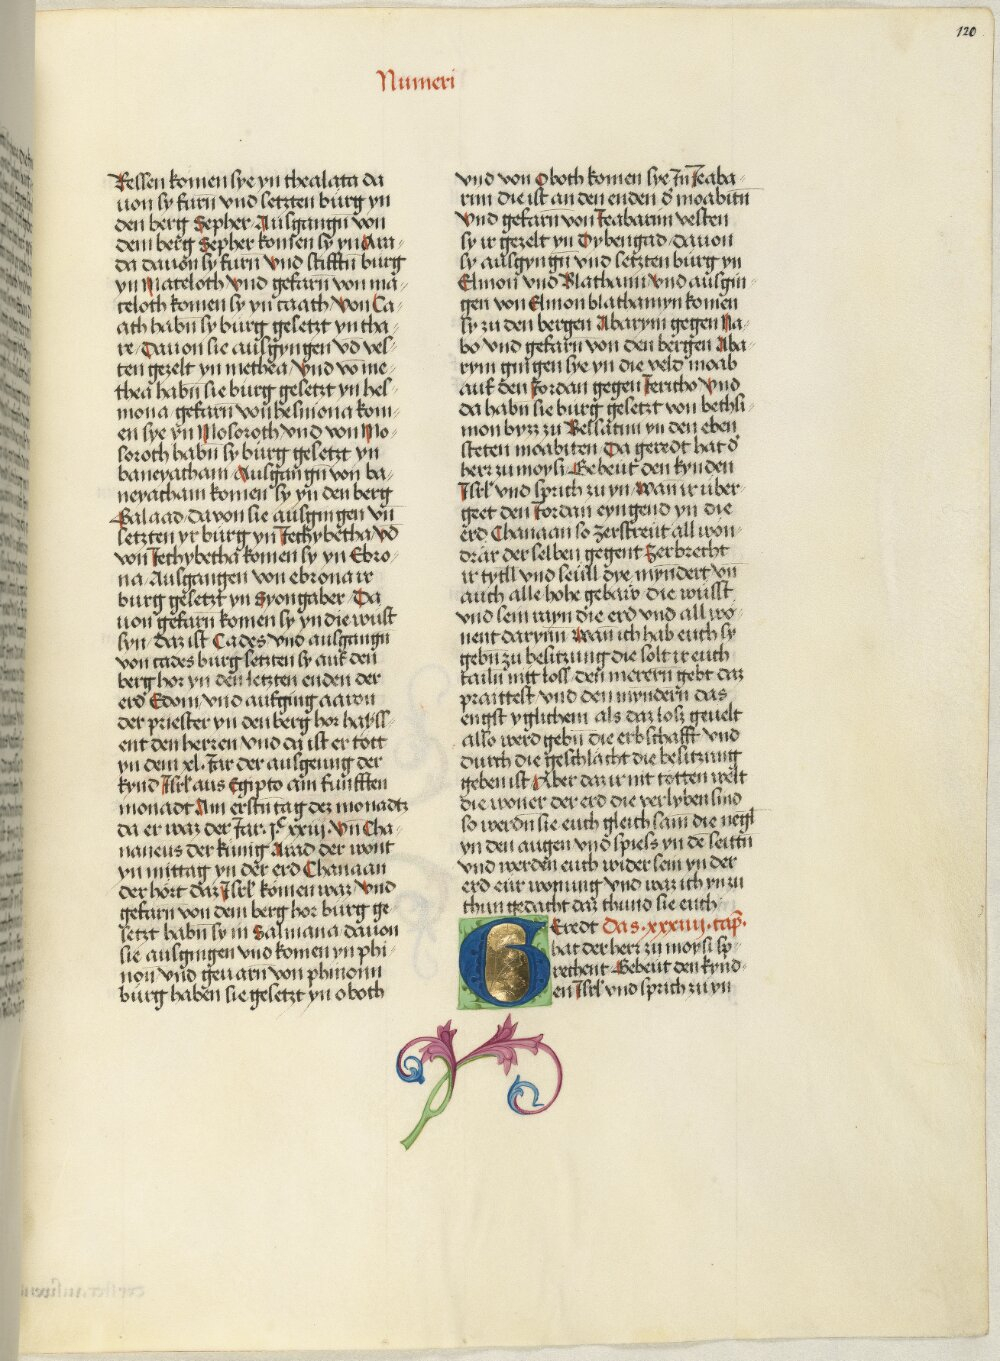 120
Numeri
Ressen komen sye yn thealata da
uon sy farn vnd setzten burg yn
den berg Sepher Ausgangn von
dem berg Sepher komen sy yn Ara-
da dauon sy furn Vnd stifftn burg
yn Mateloth Vnd gefarn von ma-
teloth komen sy yn taath Von Ta-
ath habn sy burg gesetzt yn tha-
re Dauon sie ausgyngen vo ves-
ten gezelt yn methea Vnd vo me-
thea habn sie burg gesetzt yn hes-
mona gefarn von hesmona kom-
en sye yn Mosoroth Vnd von Mo-
soroth habn sy burg gesetzt yn
baneyatham Ausgangn von ba-
neyatham komen sy yn den berg
Galaad davon sie ausgingen vn
setzten yr burg yn Jethybetha vo
von Jethybetha komen sy yn Ebro-
na Ausgangen von ebrona ir
burg gesetzt yn Syongaber Da
uon gefarn komen sy yn die wust
syn daz ist Cades vnd ausgangn
von cades burg setzten sy auf den
berg hor yn den letzten enden der
erd Edom vnd aufging aaron
der priester yn den berg hor hayss-
ent den herren vnd da ist er tott
yn dem xl. Jar der ausgeung der
kynd Isrl aus Egipto am funfften
monadt Am erstn tag dez monadtz
da er waz der Jar. jc xxiij. Vn Cha-
naneus der kunig Arad der wont
yn mittag yn der erd Chanaan
der hort daz Isrl komen waz Vnd
gefarn von dem berg hor burg ge
setzt habn sy in Salmana dauon
sie ausgingen vnd komen yn phi-
non vnd geuarn von phinonn
burg haben sie gesetzt yn oboth
vnd von Oboth komen sye In Jeaba-
rim die ist an den enden d moabitn
Vnd gefarn von Jeabarim vesten
sy ir gezelt yn Dybengad dauon
sy ausgyngn vnd setzten burg yn
Elmon vnd Blathaim Vnd ausgin-
gen von Elmon blathamyn komen
sy zu den bergen Abarym gegen Na-
bo vnd gefarn von den bergen Aba-
rym gingen sye yn die veld moab
auf den Jordan gegen Jericho Vnd
da habn sie burg gesetzt von bethsi-
mon byzz zu Bellatim yn den eben
steten moabiten Da geredt hat d
herr zu moysi Gebeut den kynden
Isrl vnd sprich zu yn Wan ir uber-
geet den Jordan eyngend yn die
erd Chanaan so zerstreut all won-
drar der selben gegent Zerbrecht
ir tytll vnd seull dye myndert vn
auch alle hohe gebaw die wusst
vnd sem rayn die erd vnd all wo-
nent darynn Wan ich hab euch sy
gebn zu besitzung die solt ir euch
tailn mit loss den merern gebt daz
praittest vnd den myndern das
engst yglichem als daz losz geuelt
also werd gebn die erbschafft vnd
durch die geschlacht die besitzung
geben ist Aber daz ir nit totten welt
die woner der erd die verlyben sind
so werdn sie euch gleich sam die negl
yn den augen vnd spiess yn de seittn
vnd werden euch wider sein yn der
erd eur wonung vnd waz ich yn zu
thun gedacht daz thund sie euch
Geredt Das .xxxiiii. cap.
hat der herr zu moysi sp-
rechent Gebeut den kynd-
en Isrl vnd sprich zu yn